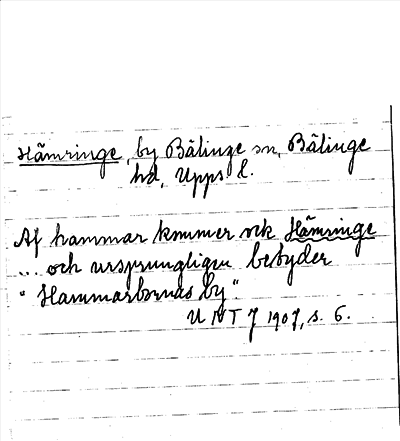 Hämringe, by Bälinge sn, Bälinge
hd, Upps l.
Af hammar kommer ock Hämringe
... och ursprungligen betyder
"Hammarbornas by".
UNTJ 1907, s. 6.